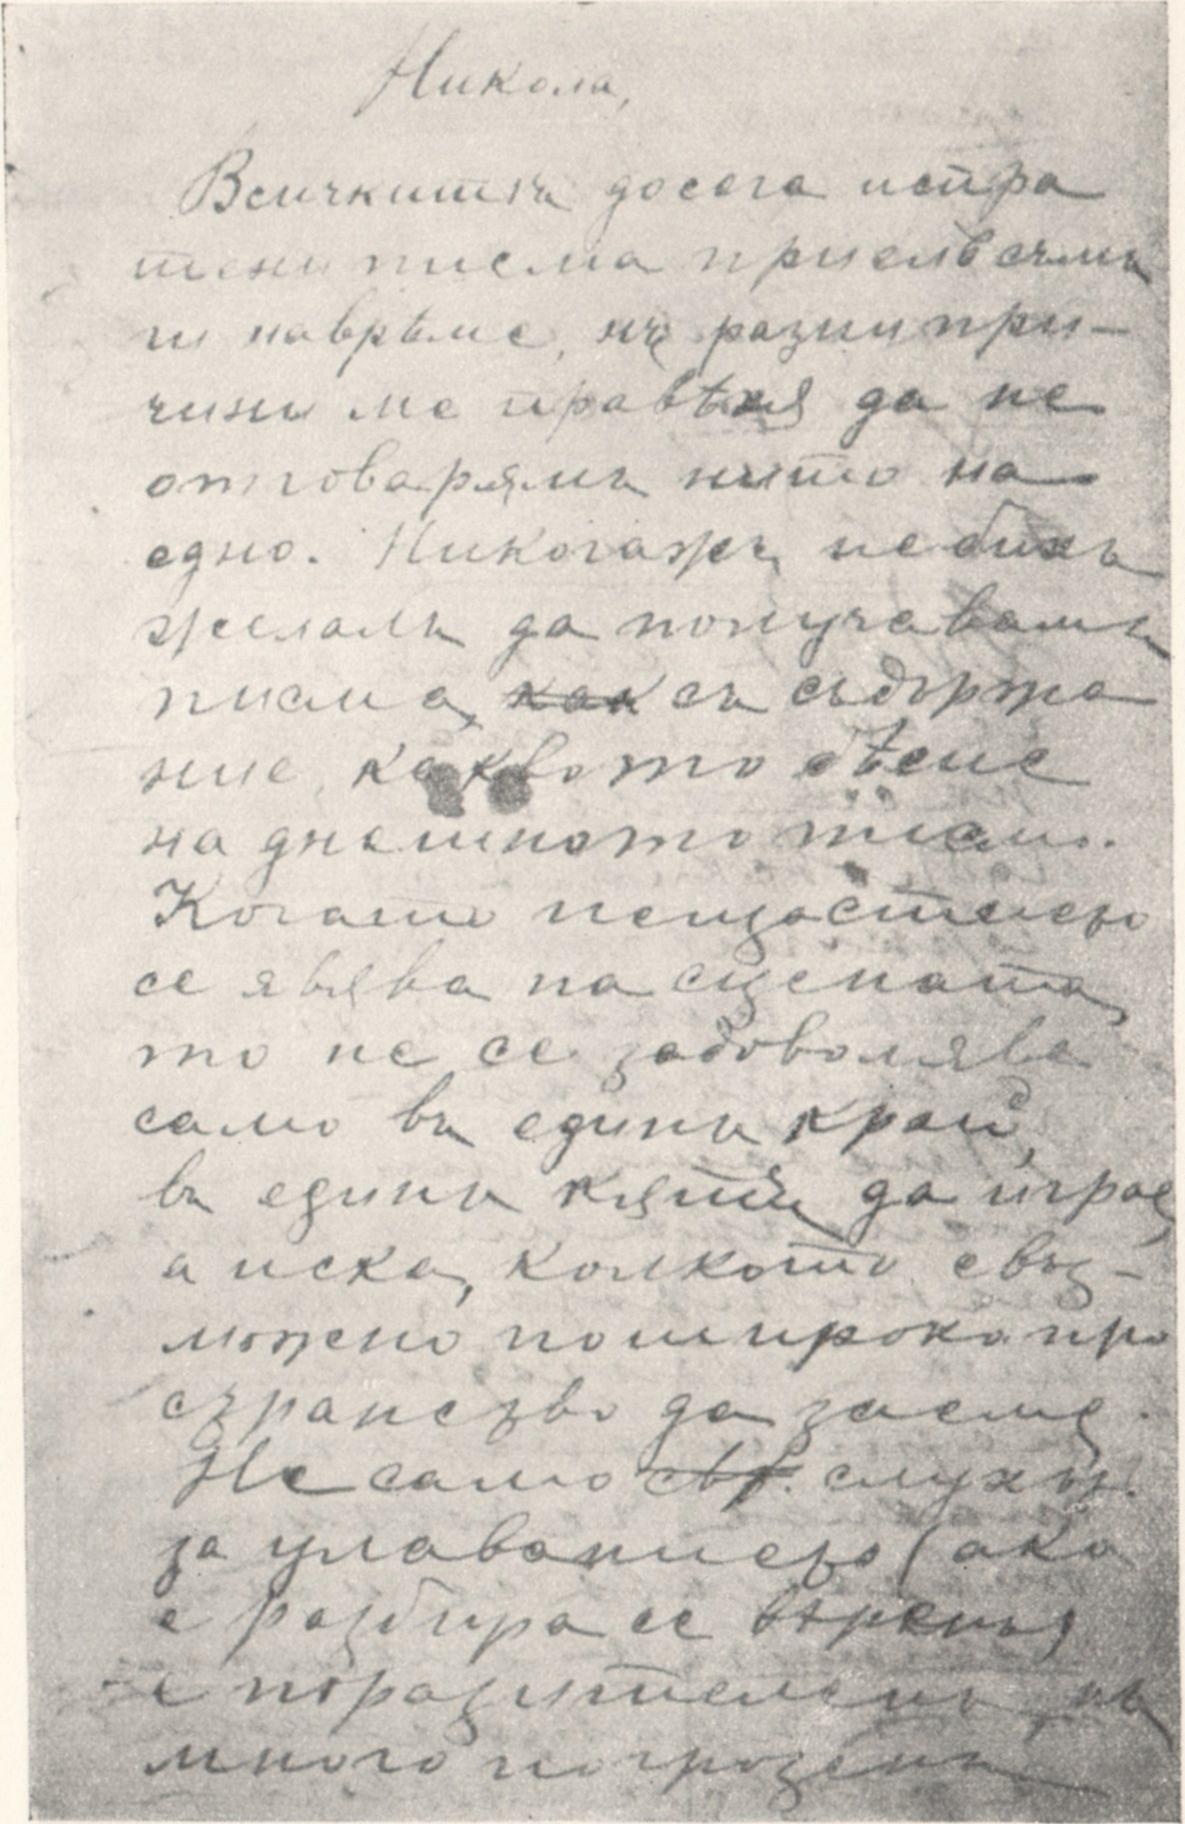 Никола,
Всичкитѣ досега испра
тени писма приелъ съмъ
ги наврѣме, нѫ разни при-
чини ме правѣхѫ да не
отговарямъ нито на
едно. Никогажъ не бихъ
желалъ да получавамъ
писма, как съ съдържа
ние, каквото бѣше
на днешното писмо.
Когато нещастието
се явява на сцената,
то не се задоволява
само въ единъ край,
въ единъ кѫтъ да играе,
а иска, колкото е въз-
можно пошироко про
странство да заеме.
Не само слухът
за улавянието (ако
е разбира се вѣренъ)
е поразителенъ, нъ
много погрозенъ